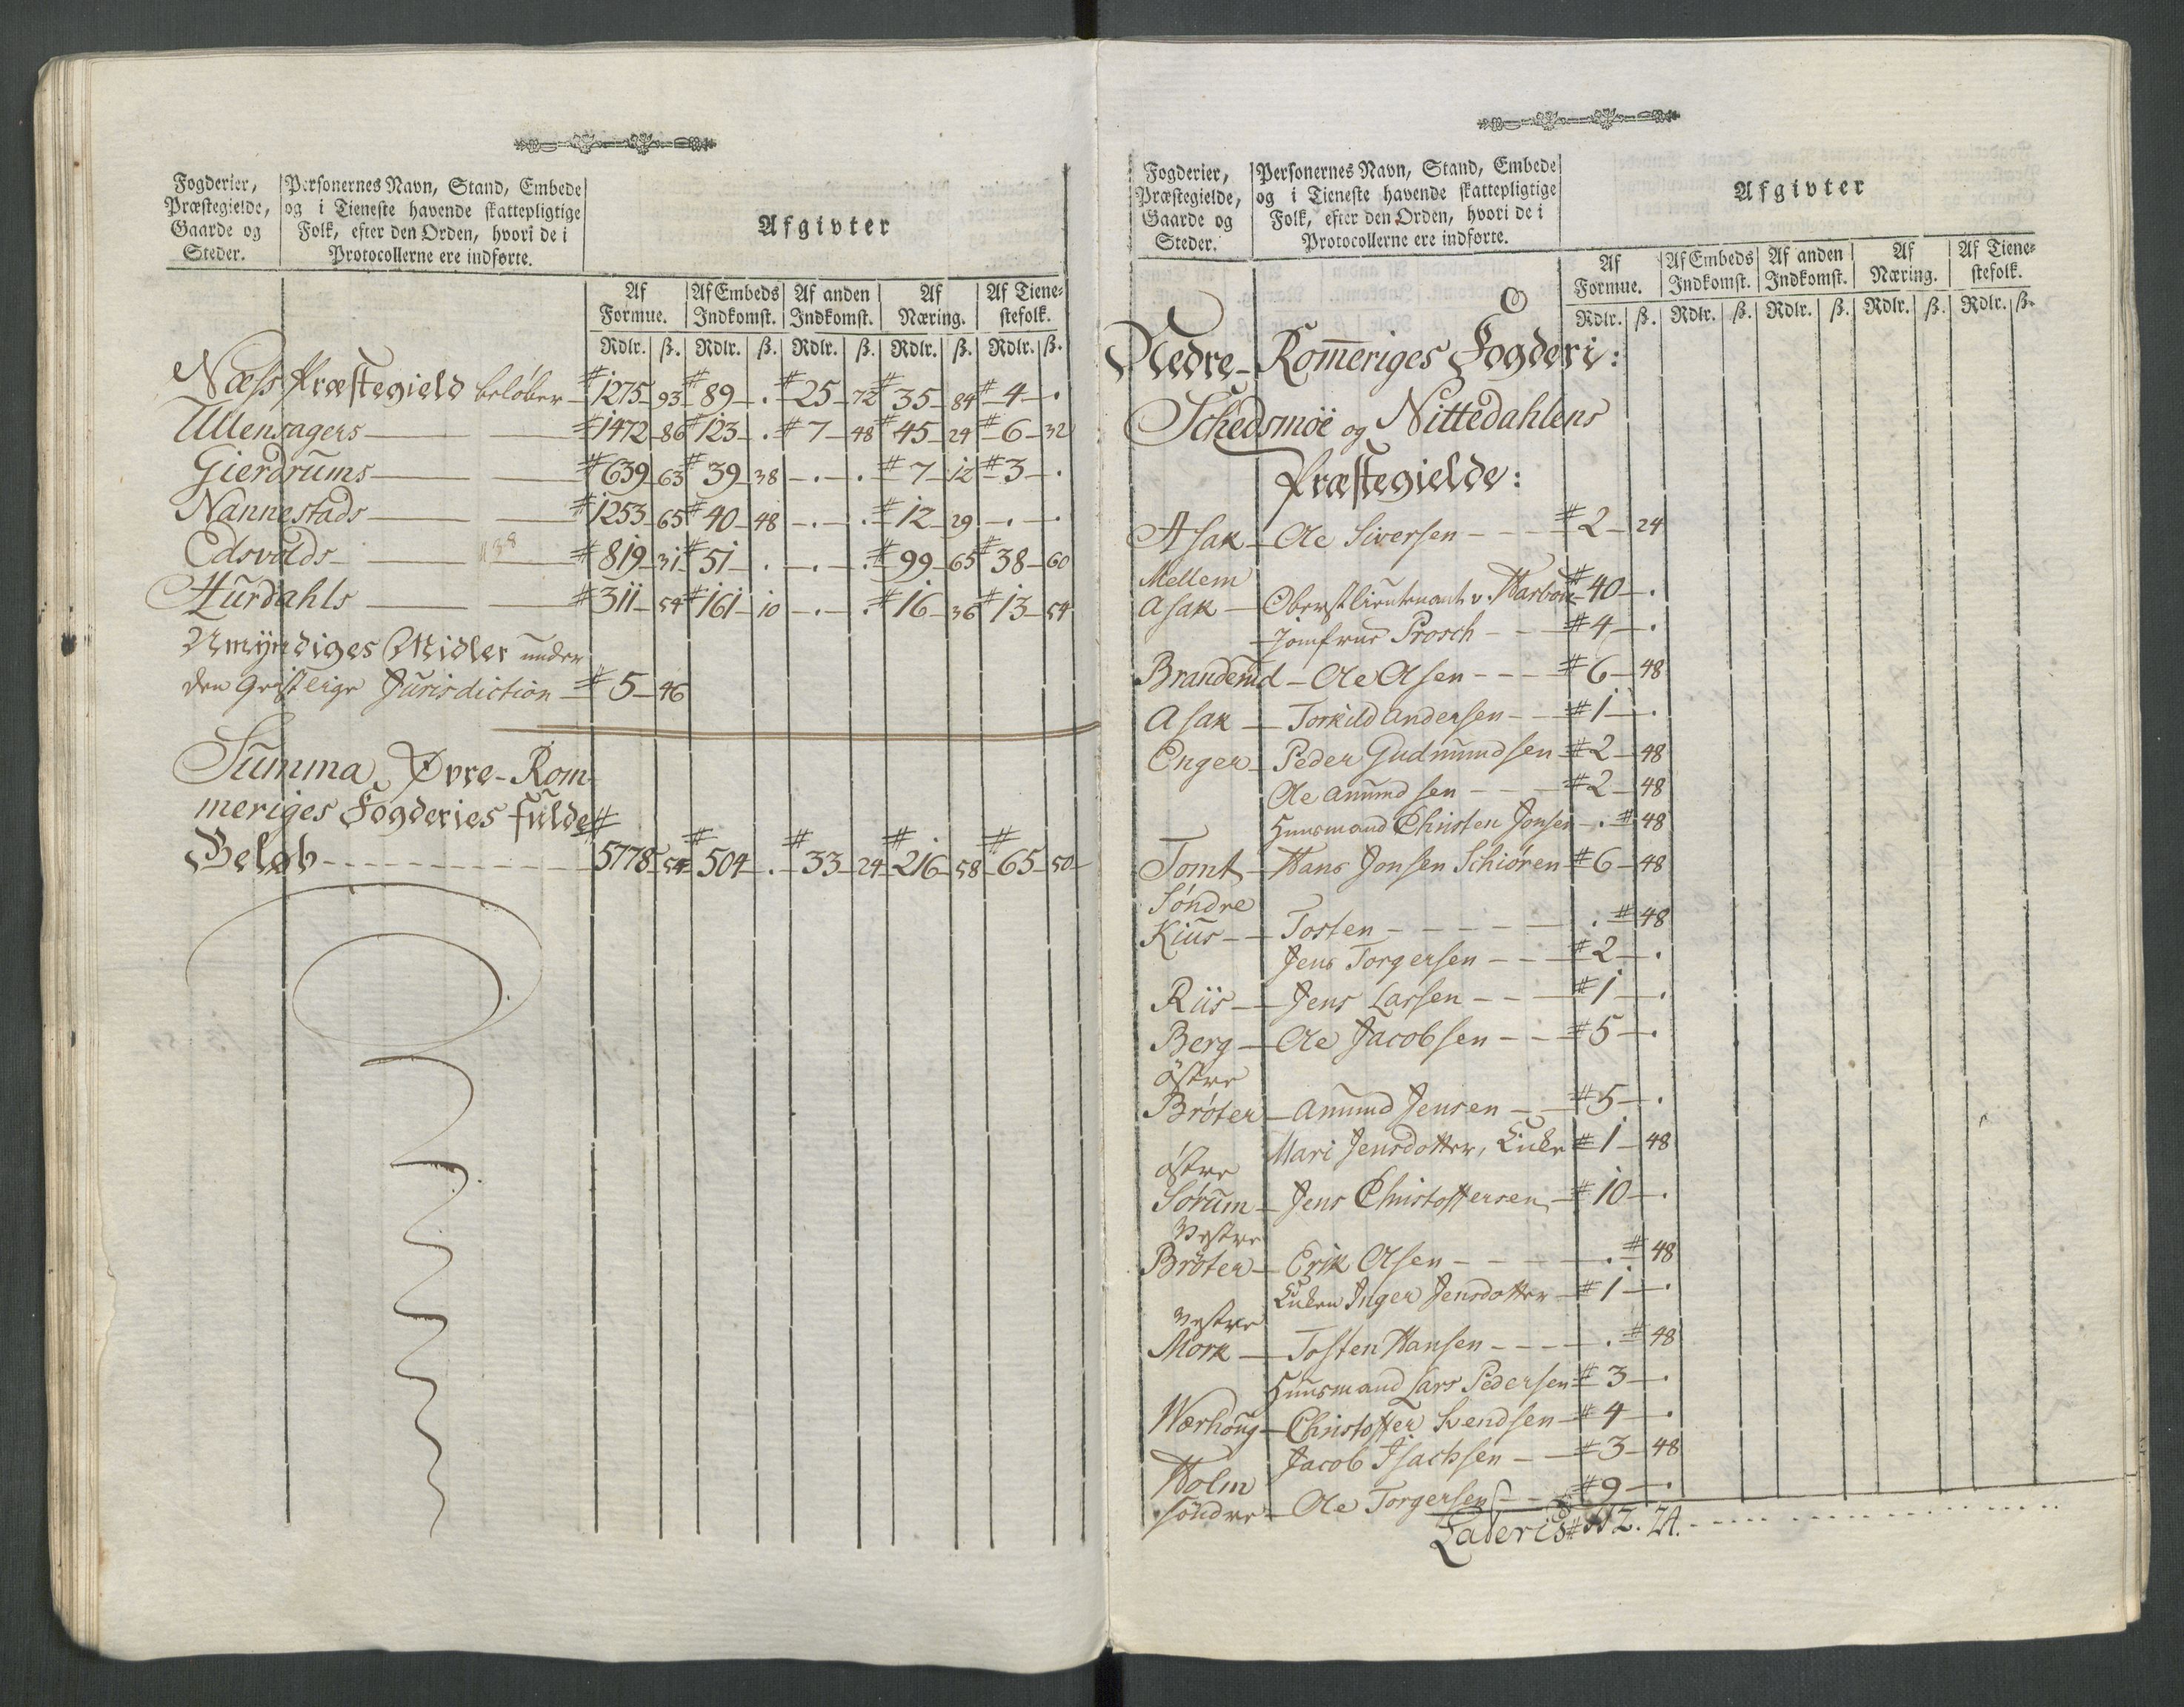 Fogderier,
Præstegielde,
Gaarde og
Steder.
Personernes Navn, Stand, Embede
og i Tieneste havende skattepligtige
Folk, efter den Orden, hvori de i
Protocollerne ere indførte.
Afgivter
Af Formue. Af Embeds Indkomst. Af anden Indkomst. Af Næring. Af Tienestefolk.
Rdlr. ß. Rdlr. ß. Rdlr. ß. Rdlr. ß. Rdlr. ß.
Næss Præstegield beløber # 1275 93 # 89 . # 25 72 # 35 84 # 4 .
Ullensagers # 1472 86 # 123 . # 7 48 # 45 24 # 6 32
Gierdrums # 639 63 # 39 38 . . # 7 12 # 3 .
Nannestads # 1253 65 # 40 48 . . # 12 29 . .
Edsvolds # 819 31 # 51 . . . # 99 65 # 38 60
Hurdahls # 311 54 # 161 10 . . # 16 36 # 13 54
Umyndiges Midler under
den geistlige Jurisdiction # 5 46
Summa Øvre-Rom-
meriges Fogderies fulde
Beløb # 5778 54 # 504 . # 33 24 # 216 58 # 65 50
Fogderier,
Præstegielde,
Gaarde og
Steder.
Personernes Navn, Stand, Embede
og i Tieneste havende skattepligtige
Folk, efter den Orden, hvori de i
Protocollerne ere indførte.
Afgivter
Af Formue. Af Embeds Indkomst. Af anden Indkomst. Af Næring. Af Tienestefolk.
Rdlr. ß. Rdlr. ß. Rdlr. ß. Rdlr. ß. Rdlr. ß.
Nedre-Rom̄eriges Fogderi:
Schedsmöe og Nittedahlens
Præstegielde:
Asak Ole Siversen # 2 24
Mellem
Asak Oberstlieutenant v. Harboe # 40 .
Jomfrue Prosch # 4 .
Brauderud Ole Olsen # 6 48
Asak Torkild Andersen # 1 .
Enger Peder Gudmundsen # 2 48
Ole Amundsen # 2 48
Huusmand Christen Jonsen . # 48
Tomt Hans Jonsen Schiören # 6 48
Söndre
Kius Tosten . # 48
Jens Torgersen # 2 .
Riis Jens Larsen # 1 .
Berg Ole Jacobsen # 5 .
östre
Bröter Amund Jensen # 5 .
Mari Jensdotter, Enke # 1 48
östre
Sörum Jens Christoffersen # 10 .
Vestre
Bröter Erik Olsen . # 48
Enken Inger Jensdotter # 1 .
Vestre
Mork Tosten Hansen . # 48
Huusmand Lars Pedersen # 3 .
Wærhoug Christoffer Svendsen # 4 .
Jacob Isachsen # 3 48
Holm
söndre Ole Torgersen # 9 .
Lateris # 112. 24.